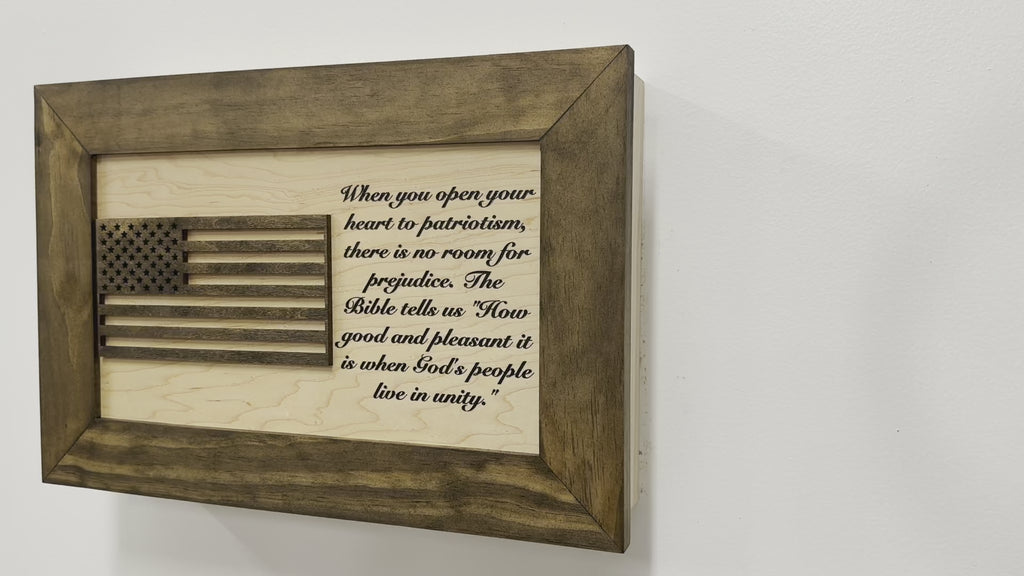 When you open your
heart to patriotism,
there is no room for
prejudice. The
Bible tells us "How
good and pleasant it
is when God's people
live in unity."